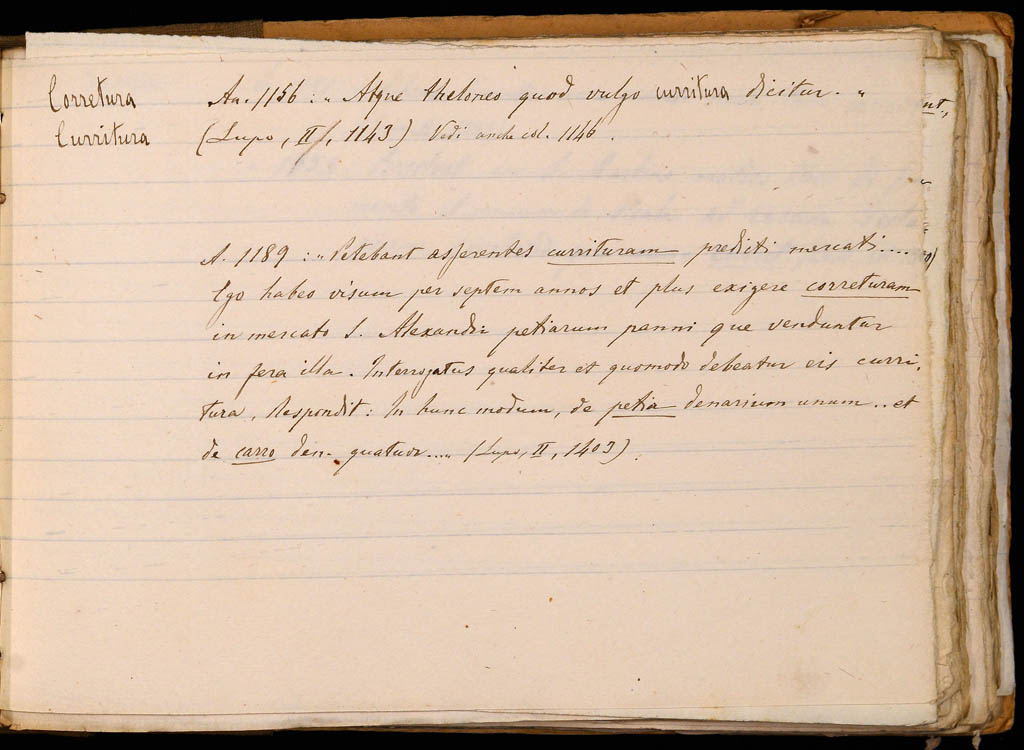 Corretura An. 1156 : „ Atque theloneo quod vulgo curritura dicitur. „
Curritura (Lupo, II, 1143) Vedi anche col. 1146.
A. 1189 : „ Petebant asserentes currituram predicti mercati....
Ego habeo visum per septem annos et plus exigere correturam
in mercato S. Alexandri petiarum panni que venduntur
in fera illa. Interrogatus qualiter et quomodo debeatur eis curri,
tura, Respondit: In hunc modum, de petia denarium unum .. et
de carro den. quatuor.... „ (Lupo, II, 1403).